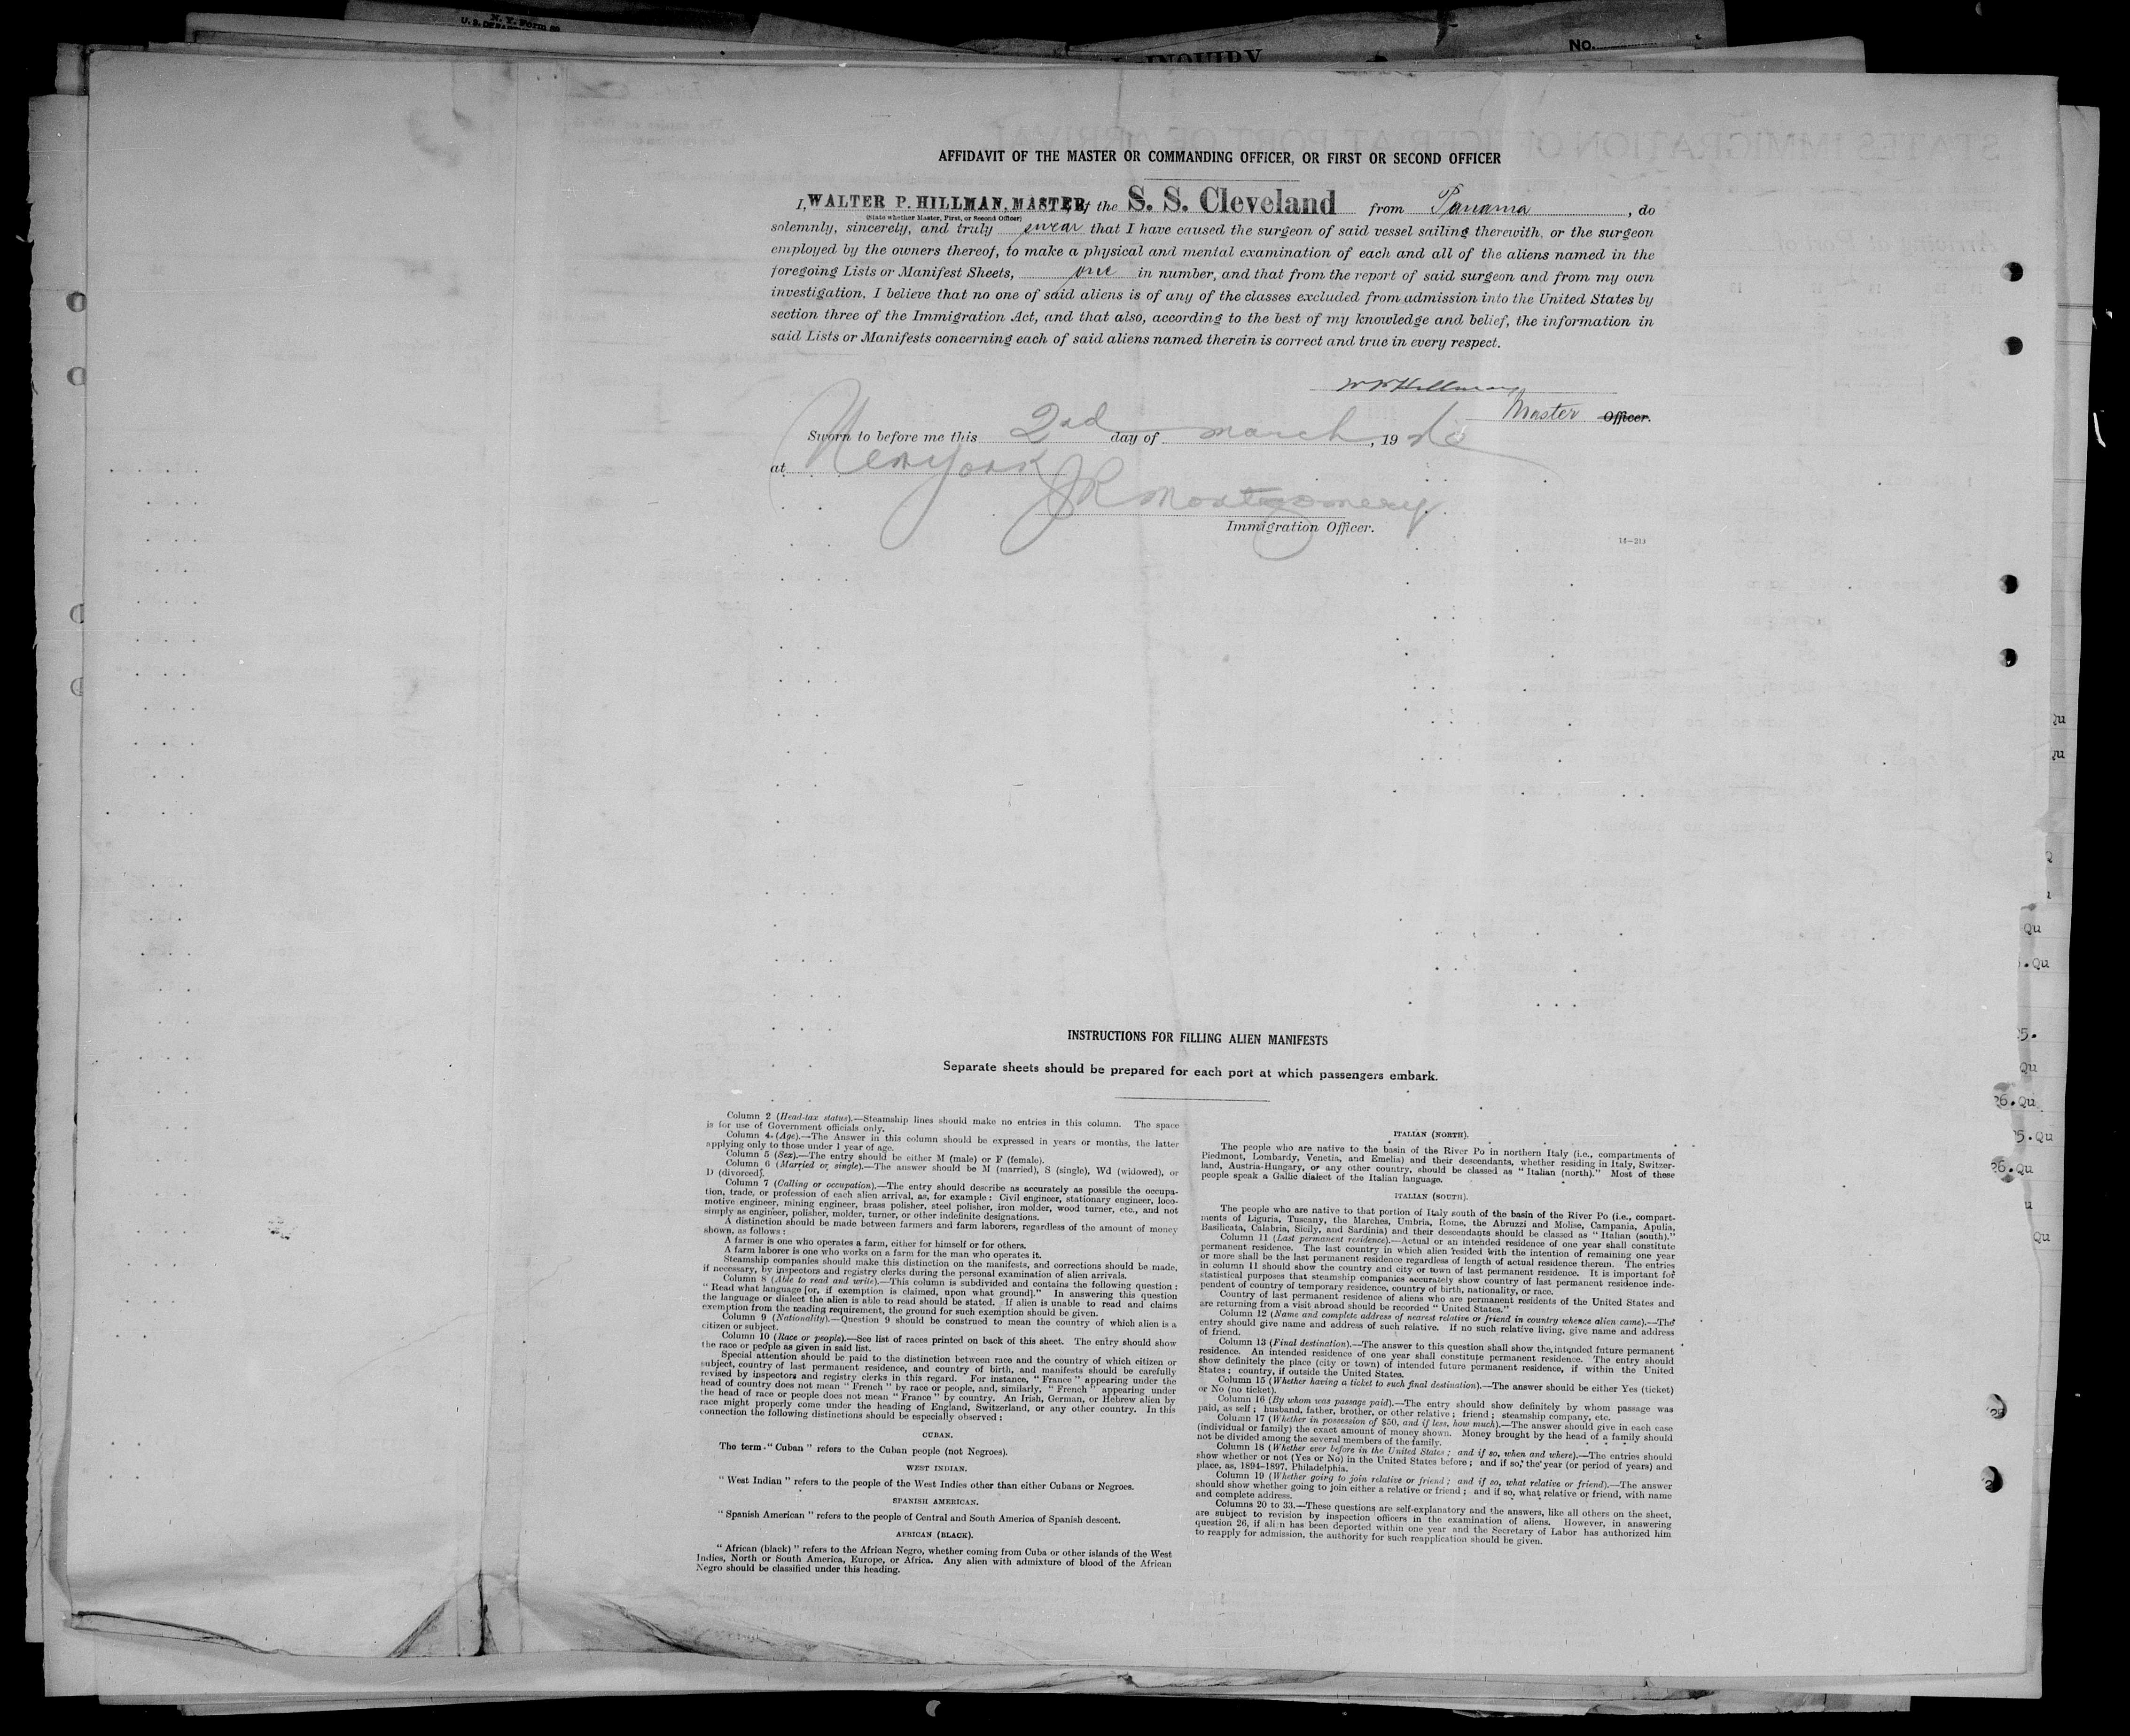 N. Y. Form
INQUIRY
No.
AFFIDAVIT OF THE MASTER OR COMMANDING OFFICER, OR FIRST OR SECOND OFFICER
I, WALTER P. HILLMAN, MASTER, of the S. S. Cleveland from Panama, do
(State whether Master, First, or Second Officer)
solemnly, sincerely, and truly swear that I have caused the surgeon of said vessel sailing therewith, or the surgeon
employed by the owners thereof, to make a physical and mental examination of each and all of the aliens named in the
foregoing Lists or Manifest Sheets, one in number, and that from the report of said surgeon and from my own
investigation, I believe that no one of said aliens is of any of the classes excluded from admission into the United States by
section three of the Immigration Act, and that also, according to the best of my knowledge and belief, the information in
said Lists or Manifests concerning each of said aliens named therein is correct and true in every respect.
W P Hillman
Master Officer.
Sworn to before me this 2nd day of March, 19
at New York
J R Montgomery
Immigration Officer.
INSTRUCTIONS FOR FILLING ALIEN MANIFESTS
Separate sheets should be prepared for each port at which passengers embark.
Column 2 (Head-tax status).—Steamship lines should make no entries in this column. The space
is for use of Government officials only.
Column 4. (Age).—The Answer in this column should be expressed in years or months, the latter
applying only to those under 1 year of age.
Column 5 (Sex).—The entry should be either M (male) or F (female).
Column 6 (Married or single).—The answer should be M (married), S (single), Wd (widowed), or
D (divorced).
Column 7 (Calling or occupation).—The entry should describe as accurately as possible the occupa-
tion, trade, or profession of each alien arrival, as, for example: Civil engineer, stationary engineer, loco-
motive engineer, mining engineer, brass polisher, steel polisher, iron molder, wood turner, etc., and not
simply as engineer, polisher, molder, turner, or other indefinite designations.
A distinction should be made between farmers and farm laborers, regardless of the amount of money
shown, as follows:
A farmer is one who operates a farm, either for himself or for others.
A farm laborer is one who works on a farm for the man who operates it.
Steamship companies should make this distinction on the manifests, and corrections should be made,
if necessary, by inspectors and registry clerks during the personal examination of alien arrivals.
Column 8 (Able to read and write).—This column is subdivided and contains the following question:
"Read what language [or, if exemption is claimed, upon what ground]." In answering this question
the language or dialect the alien is able to read should be stated. If alien is unable to read and claims
exemption from the reading requirement, the ground for such exemption should be given.
Column 9 (Nationality).—Question 9 should be construed to mean the country of which alien is a
citizen or subject.
Column 10 (Race or people).—See list of races printed on back of this sheet. The entry should show
the race or people as given in said list.
Special attention should be paid to the distinction between race and the country of which citizen or
subject, country of last permanent residence, and country of birth, and manifests should be carefully
revised by inspectors and registry clerks in this regard. For instance, "France" appearing under the
head of country does not mean "French" by race or people, and, similarly, "French" appearing under
the head of race or people does not mean "France" by country. An Irish, German, or Hebrew alien by
race might properly come under the heading of England, Switzerland, or any other country. In this
connection the following distinctions should be especially observed:
CUBAN.
The term "Cuban" refers to the Cuban people (not Negroes).
WEST INDIAN.
"West Indian" refers to the people of the West Indies other than either Cubans or Negroes.
SPANISH AMERICAN.
"Spanish American" refers to the people of Central and South America of Spanish descent.
AFRICAN (BLACK).
"African (black)" refers to the African Negro, whether coming from Cuba or other islands of the West
Indies, North or South America, Europe, or Africa. Any alien with admixture of blood of the African
Negro should be classified under this heading.
ITALIAN (NORTH).
The people who are native to the basin of the River Po in northern Italy (i.e., compartments of
Piedmont, Lombardy, Venetia, and Emelia) and their descendants, whether residing in Italy, Switzer-
land, Austria-Hungary, or any other country, should be classed as "Italian (north)." Most of these
people speak a Gallic dialect of the Italian language.
ITALIAN (SOUTH).
The people who are native to that portion of Italy south of the basin of the River Po (i.e., compart-
ments of Liguria, Tuscany, the Marches, Umbria, Rome, the Abruzzi and Molise, Campania, Apulia,
Basilicata, Calabria, Sicily, and Sardinia) and their descendants should be classed as "Italian (south)."
Column 11 (Last permanent residence).—Actual or an intended residence of one year shall constitute
permanent residence. The last country in which alien resided with the intention of remaining one year
or more shall be the last permanent residence regardless of length of actual residence therein. The entries
in column 11 should show the country and city or town of last permanent residence. It is important for
statistical purposes that steamship companies accurately show country of last permanent residence inde-
pendent of country of temporary residence, country of birth, nationality, or race.
Country of last permanent residence of aliens who are permanent residents of the United States and
are returning from a visit abroad should be recorded "United States."
Column 12 (Name and complete address of nearest relative or friend in country whence alien came).—The
entry should give name and address of such relative. If no such relative living, give name and address
of friend.
Column 13 (Final destination).—The answer to this question shall show the intended future permanent
residence. An intended residence of one year shall constitute permanent residence. The entry should
show definitely the place (city or town) of intended future permanent residence, if within the United
States; country, if outside the United States.
Column 15 (Whether having a ticket to such final destination).—The answer should be either Yes (ticket)
or No (no ticket).
Column 16 (By whom was passage paid).—The entry should show definitely by whom passage was
paid, as self; husband, father, brother, or other relative; friend; steamship company, etc.
Column 17 (Whether in possession of $50, and if less, how much).—The answer should give in each case
(individual or family) the exact amount of money shown. Money brought by the head of a family should
not be divided among the several members of the family.
Column 18 (Whether ever before in the United States; and if so, when and where).—The entries should
show whether or not (Yes or No) in the United States before; and if so, the year (or period of years) and
place, as, 1894-1897, Philadelphia.
Column 19 (Whether going to join relative or friend; and if so, what relative or friend).—The answer
should show whether going to join either a relative or friend; and if so, what relative or friend, with name
and complete address.
Columns 20 to 33.—These questions are self-explanatory and the answers, like all others on the sheet,
are subject to revision by inspection officers in the examination of aliens. However, in answering
question 26, if alien has been deported within one year and the Secretary of Labor has authorized him
to reapply for admission, the authority for such reapplication should be given.